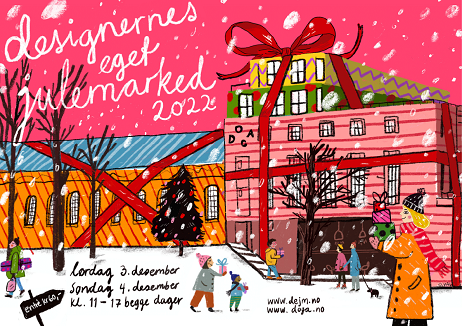 designernes
eget
julemarked
2022
DOGA
Lørdag 3. desember
Søndag 4. desember
kl. 11-17 begge dager
entré kr 60,-
www.dejm.no
www.doga.no